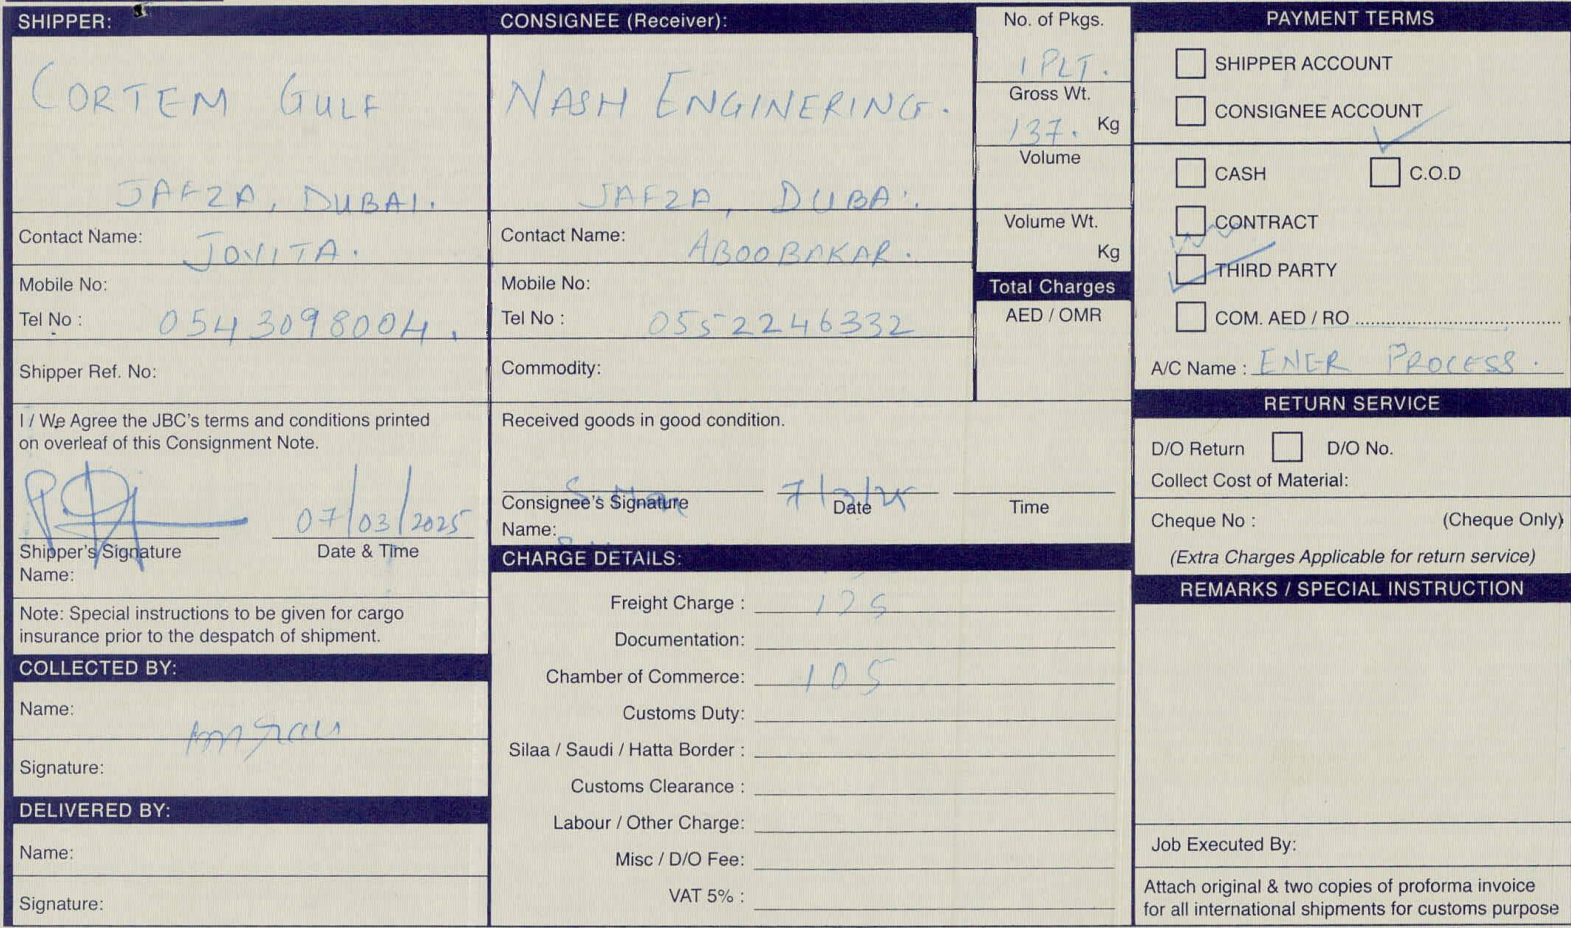 SHIPPER:
CORTEM GULF
JAFZA, DUBAI.
Contact Name: JOVITA.
Mobile No:
Tel No : 0543098004.
Shipper Ref. No:
I / We Agree the JBC's terms and conditions printed
on overleaf of this Consignment Note.
07/03/2025
Shipper's Signature
Date & Time
Name:
Note: Special instructions to be given for cargo
insurance prior to the despatch of shipment.
COLLECTED BY:
Name:
Signature:
DELIVERED BY:
Name:
Signature:
CONSIGNEE (Receiver):
NASH ENGINERING.
JAFZA, DUBAI.
Contact Name: ABOOBAKAR.
Mobile No:
Tel No : 0552246332
Commodity:
Received goods in good condition.
7/3/25
Consignee's Signature
Date
Time
Name:
CHARGE DETAILS:
Freight Charge : 125
Documentation:
Chamber of Commerce: 105
Customs Duty:
Silaa / Saudi / Hatta Border :
Customs Clearance :
Labour / Other Charge:
Misc / D/O Fee:
VAT 5% :
No. of Pkgs.
1 PLT.
Gross Wt.
137. Kg
Volume
Volume Wt.
Kg
Total Charges
AED / OMR
PAYMENT TERMS
SHIPPER ACCOUNT
CONSIGNEE ACCOUNT
CASH
C.O.D
CONTRACT
THIRD PARTY
COM. AED / RO
A/C Name : ENER PROCESS.
RETURN SERVICE
D/O Return
D/O No.
Collect Cost of Material:
Cheque No :
(Cheque Only)
(Extra Charges Applicable for return service)
REMARKS / SPECIAL INSTRUCTION
Job Executed By:
Attach original & two copies of proforma invoice
for all international shipments for customs purpose